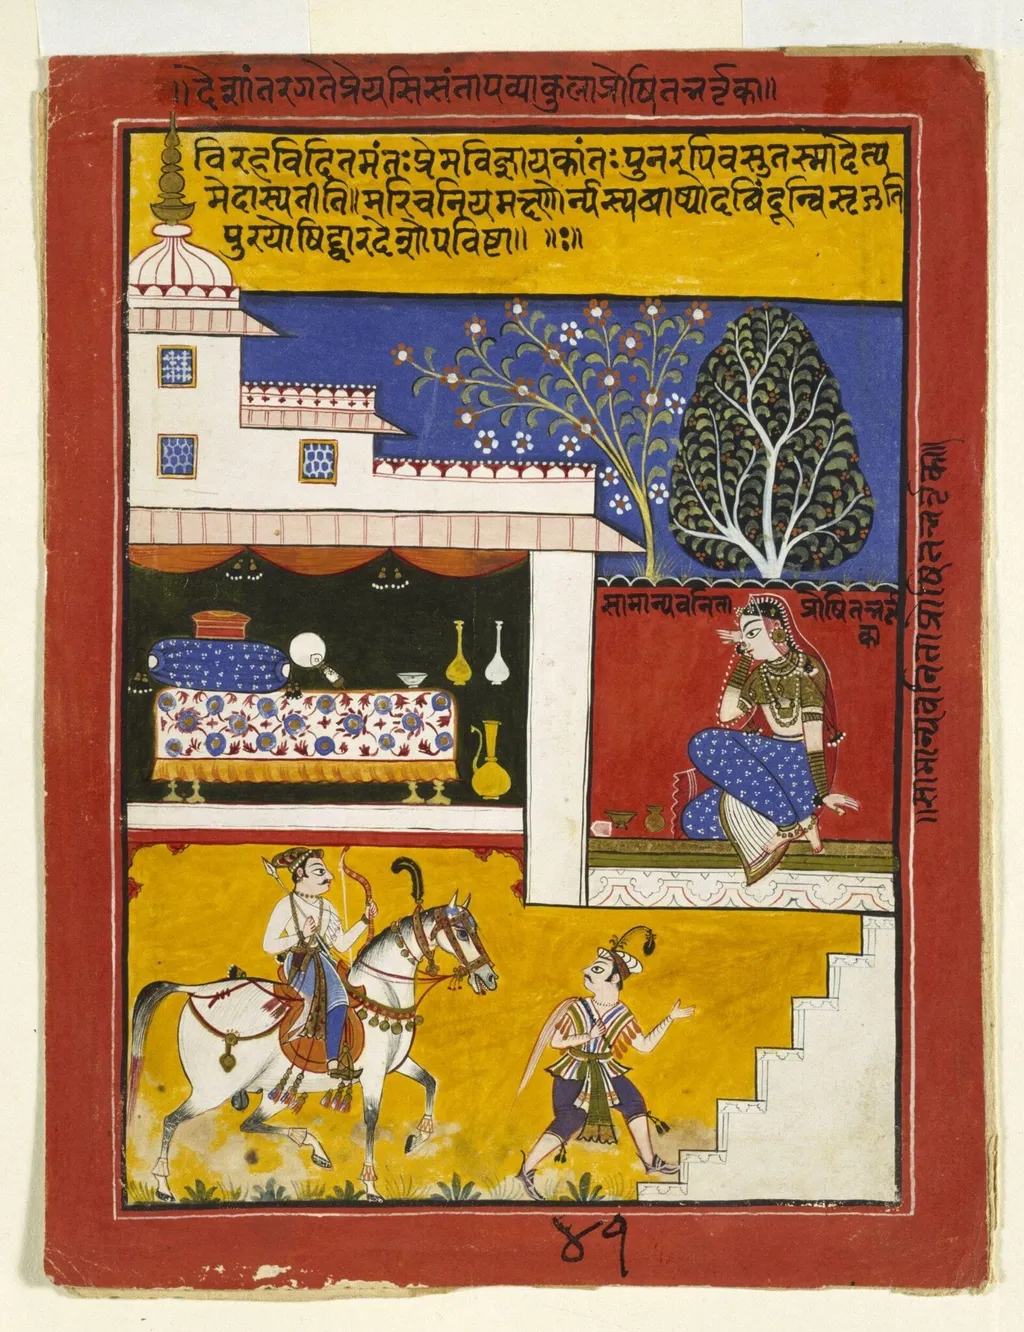 ॥देशांतरगतेप्रेयसिसंतापव्याकुलाप्रोषितभर्तृका॥
विरहविदितमंतःप्रेमविज्ञायकांतःपुनरपिवसुतस्मादेत्य
मेदास्यतीति॥मरिचनियममक्ष्णोर्न्यस्यबाष्पोदबिंदून्विसृजति
पुरयोषिद्द्वारदेशोपविष्टा॥ ॥ः॥
सामान्यवनिता प्रोषितभर्तृ
का
॥सामान्यवनिताप्रोषितभर्तृका॥
४१